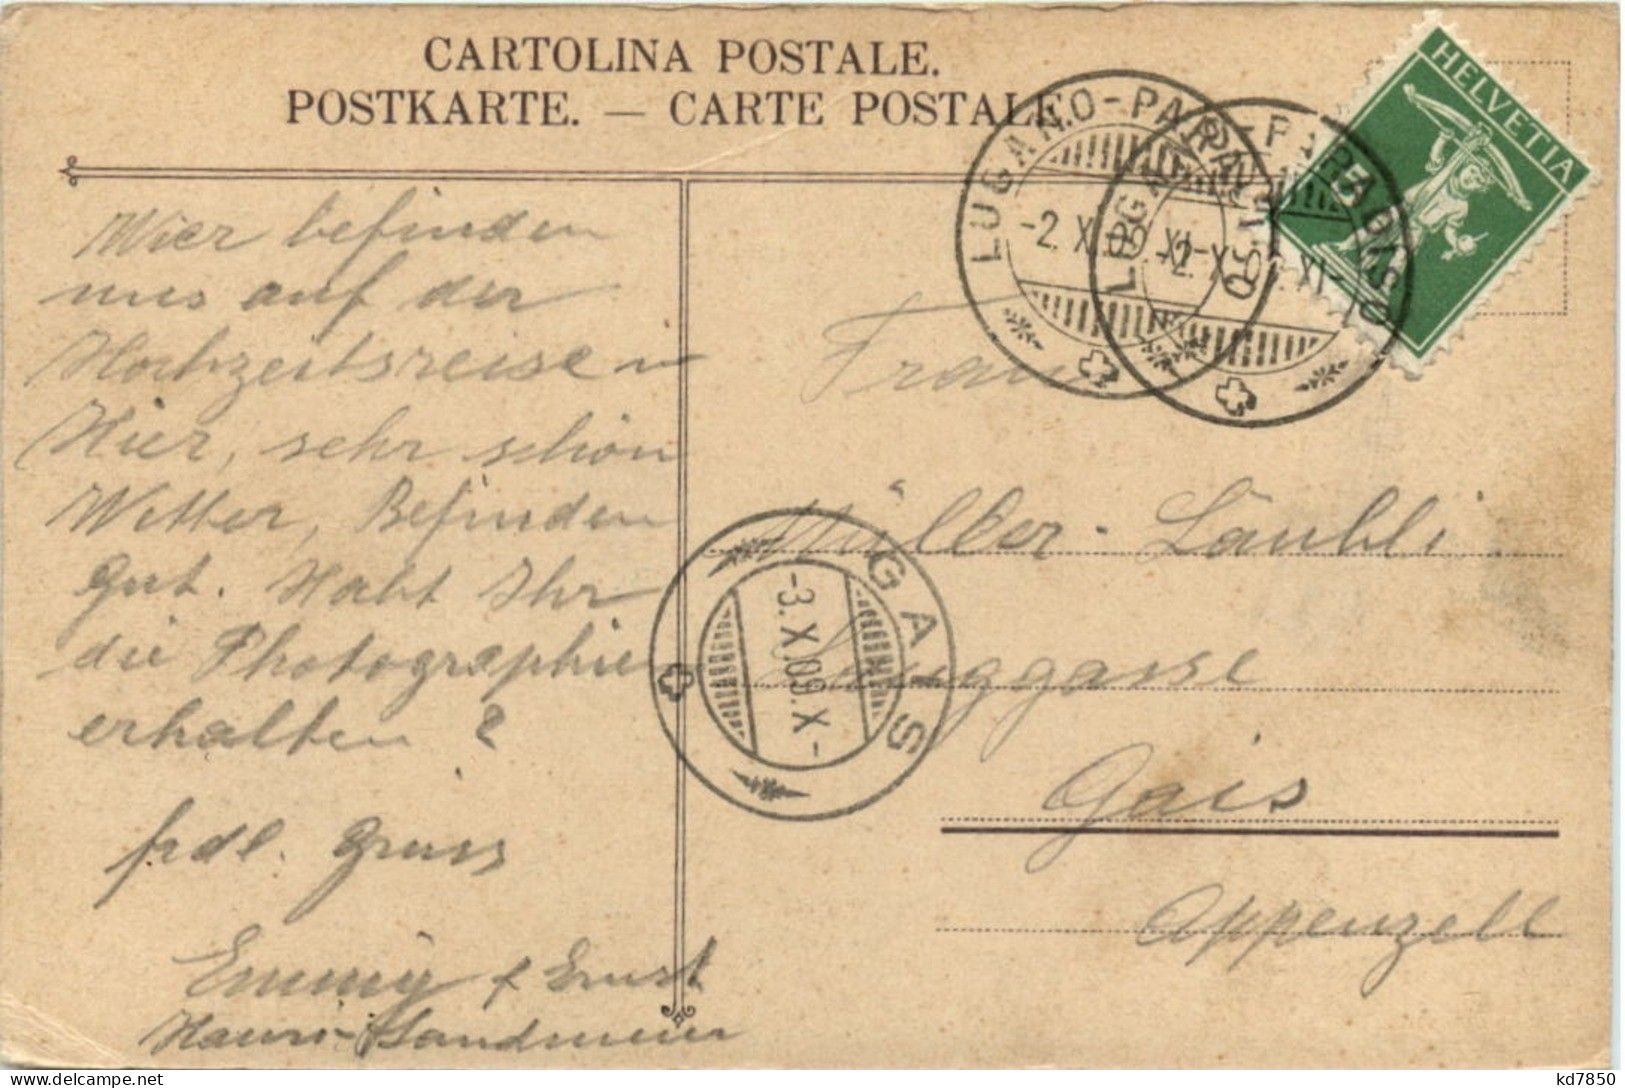 CARTOLINA POSTALE.
POSTKARTE. — CARTE POSTALE.
HELVETIA
LUGANO-PARADISO
-2. X. 09. XI-
LUGANO-PARADISO
-2. X. XI-
Wier befinden
uns auf der
Hochzeitsreise
Hier, sehr schön
Wetter, Befinden
gut. Habt Ihr
die Photographie
erhalten?
frdl. Gruss
Emmy & Ernst
Hauri-Sandmeier
Frau
Müller-Läubli
Langgasse
Gais
Appenzell
GAIS
-3. X. 09. X-
delcampe.net
kd7850